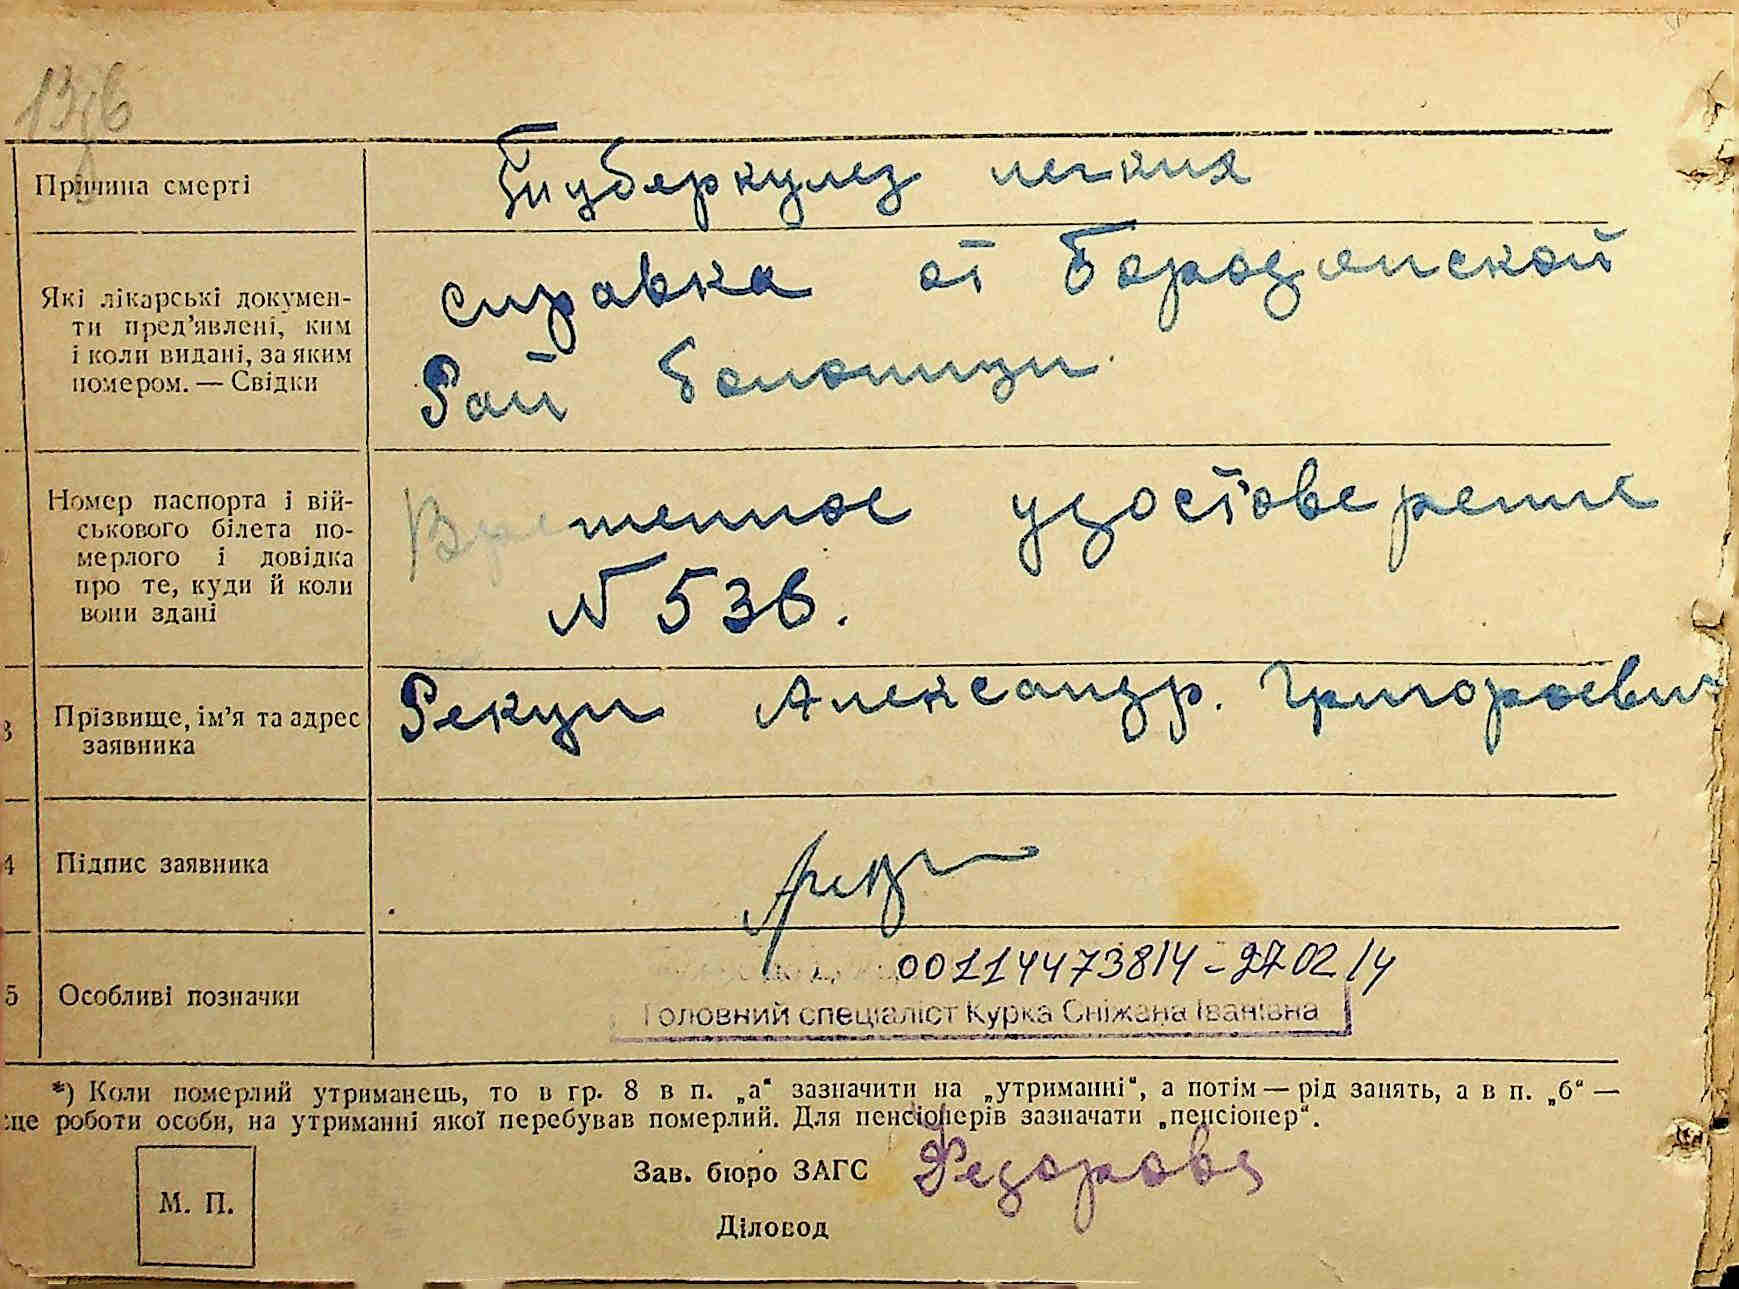 136
Причина смерті
Туберкулез легких
Які лікарські докумен-
ти пред'явлені, ким
і коли видані, за яким
номером. — Свідки
справка от Бородянской
Рай больници
Номер паспорта і вій-
ськового білета по-
мерлого і довідка
про те, куди й коли
вони здані
Временное удостоверение
N 536.
3
Прізвище, ім'я та адрес
заявника
Рекун Александр. Григорьевич
4
Підпис заявника
5
Особливі позначки
00114473814 - 27 02 14
Головний спеціаліст Курка Сніжана Іванівна
*) Коли померлий утриманець, то в гр. 8 в п. „а“ зазначити на „утриманні“, а потім — рід занять, а в п. „б“ —
це роботи особи, на утриманні якої перебував померлий. Для пенсіонерів зазначати „пенсіонер“.
Зав. бюро ЗАГС Федорова
М. П.
Діловод